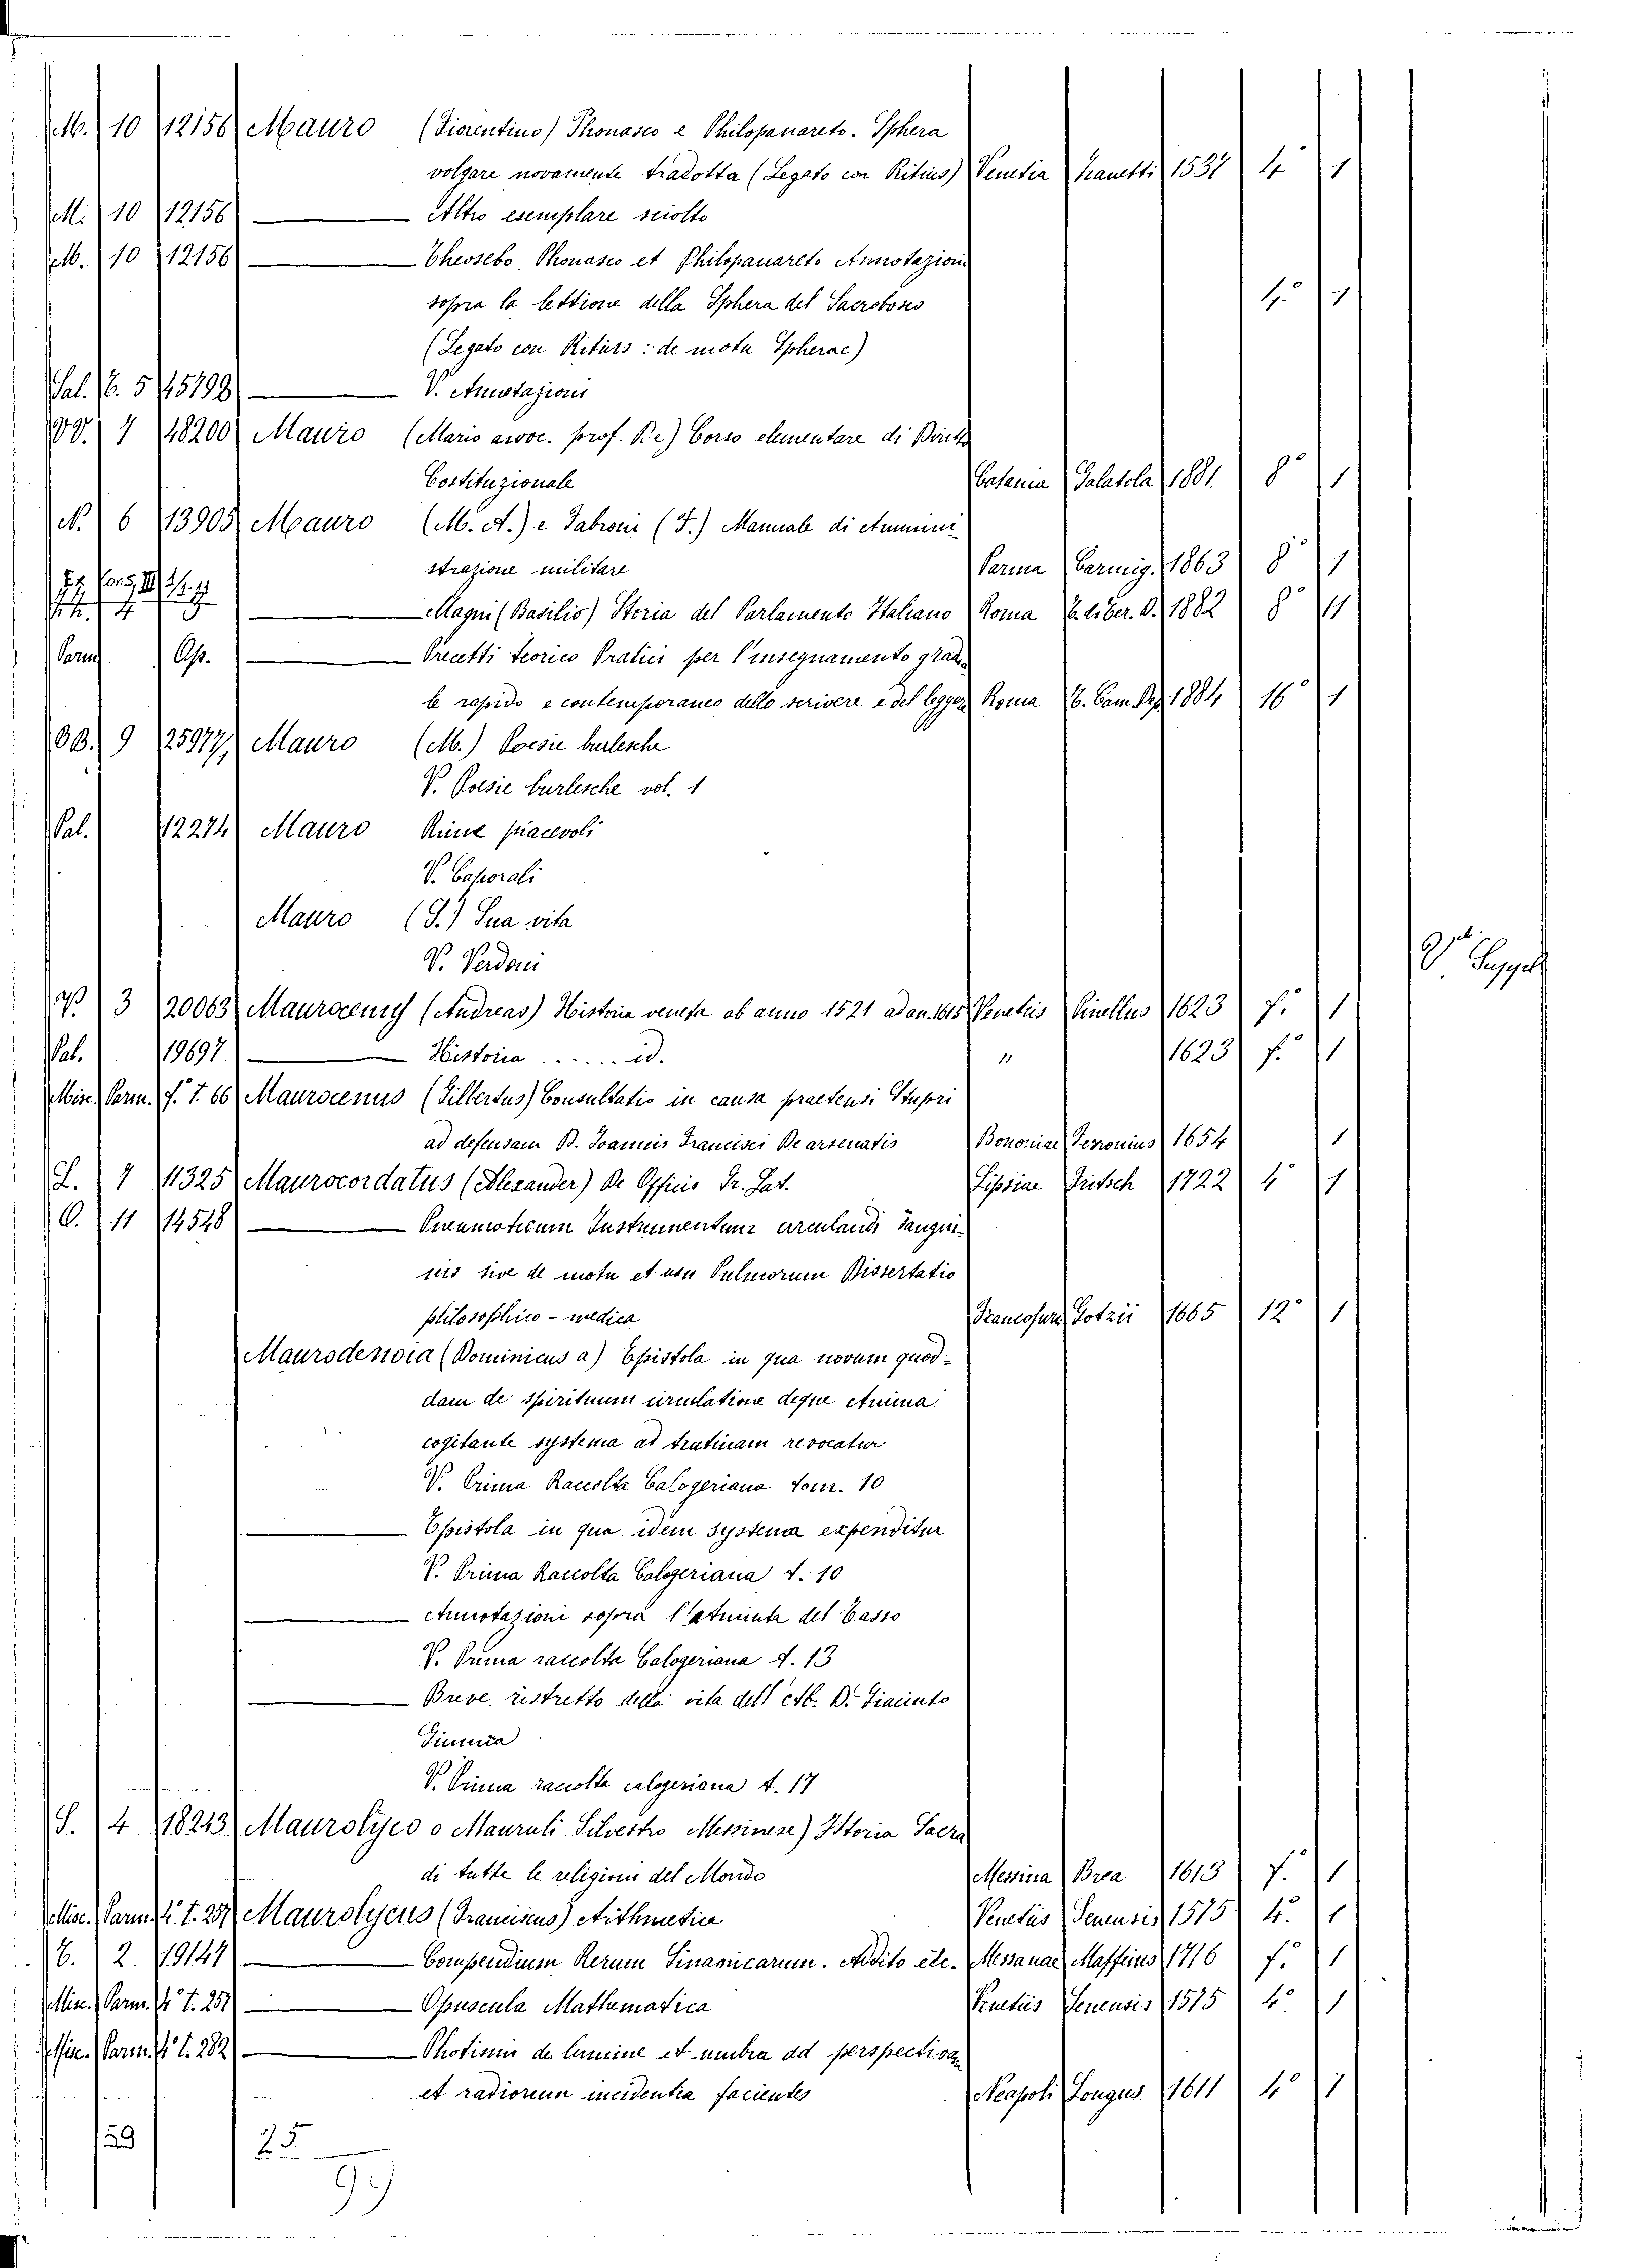 M. 10 12156 Mauro (Fiorentino) Phonasco e Philopanareto. Sphera
volgare novamente tradotta (Legato con Ritius) Venetia Zanetti 1537 4 1
M. 10 12156 Altro esemplare sciolto
M. 10 12156 Theosebo Phonasco et Philopanareto Annotazioni
sopra la lettione della Sphera del Sacrobosco 4° 1
(Legato con Ritius: de motu Spherae)
Sal. C. 5 45798 V. Annotazioni
VV. 7 48200 Mauro (Mario avvoc. prof. Re) Corso elementare di Diritto
Costituzionale Catania Galatola 1881. 8° 1
N. 6 13905 Mauro (M. A.) e Fabroni (F.) Manuale di Ammini-
strazione militare Parma Carmig. 1863 8° 1
Magni (Basilio) Storia del Parlamento Italiano Roma C. liber. D. 1882 8° 11
Parm Op. Precetti teorico Pratici per l'insegnamento gradu
le rapido e contemporaneo dello scrivere e del leggere Roma C. Cam Dep 1884 16° 1
BB. 9 25977, Mauro (M.) Poesie burlesche
V. Poesie burlesche vol. 1
Pal. 12274 Mauro Rime piacevoli
V. Caporali
Mauro (S.) Sua vita
V. Verdoni
V. Suppl
V. 3 20063 Maurocenus (Andreas) Historia veneta ab anno 1521 ad an. 1615 Venetiis Pinellus 1623 f. 1
Pal. 19697 Historia ...... id. " 1623 f. 1
Misc. Parm. f. T. 66 Maurocenus (Gilbertus) Consultatio in causa praetensi Stupri
ad defensam B. Joannis Francisci De arsenatis Bononiae Ferronius 1654 1
L. 7 11325 Maurocordatus (Alexander) De Officiis Gr. Lat. Lipsiae Fritsch 1722 4° 1
O. 11 14548 Pneumaticum Instrumentum circulandi sangui-
nis sive de motu et usu Pulmorum Dissertatio
philosophico - medica Francofurti Gotzii 1665 12° 1
Maurodenoia (Dominicus a) Epistola in qua novum quod-
dam de spirituum circulatione deque Anima
cogitante systema ad trutinam revocatur
V. Prima Raccolta Calogeriana tom. 10
Epistola in qua idem systema expenditur
V. Prima Raccolta Calogeriana t. 10
Annotazioni sopra l'Aminta del Tasso
V. Prima raccolta Calogeriana t. 13
Breve ristretto della vita dell'Ab. D. Giacinto
Gimma
V. Prima raccolta calogeriana t. 17
S. 4 18243 Maurolyco o Mauruli Silvestro Messinese) Istoria Sacra
di tutte le religioni del Mondo Messina Brea 1613 f. 1
Misc. Parm. 4° t. 251 Maurolycus (Franciscus) Arithmetica Venetiis Senensis 1575 4° 1
C. 2 19147 Compendium Rerum Sinanicarum. Addito etc. Messanae Maffeius 1716 f.° 1
Misc. Parm. 4° t. 251 Opuscula Mathematica Venetiis Senensis 1575 4° 1
Misc. Parm. 4° t. 282 Photismi de lumine et umbra ad perspectivam
et radiorum incidentia facientes Neapoli Longus 1611 4° 1
29 25
9